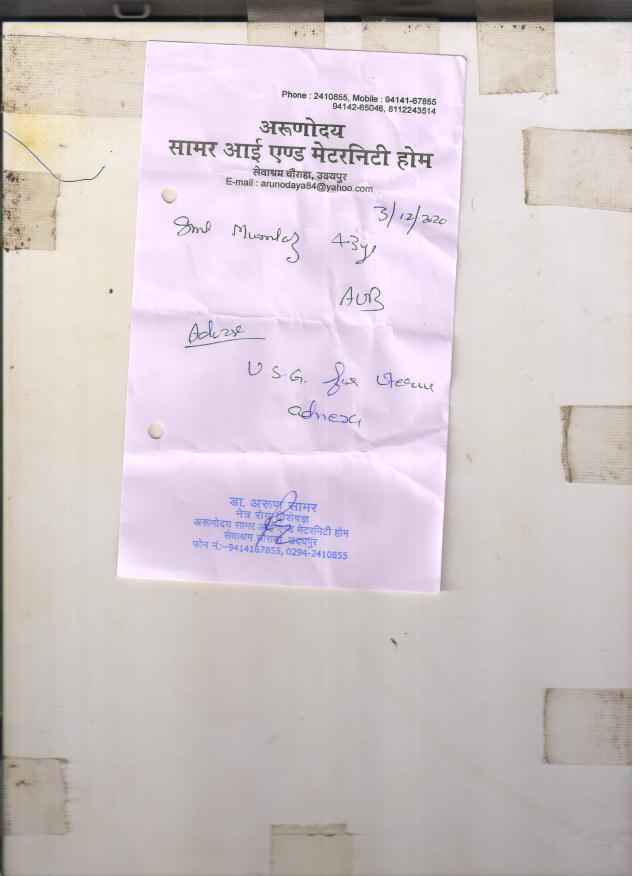 Phone : 2410855, Mobile : 94141-67855
94142-65046, 8112243514
अरूणोदय
सामर आई एण्ड मेटरनिटी होम
सेवाश्रम चौराहा, उदयपुर
E-mail : arunodaya84@yahoo.com
3/12/2020
Smt Mumtaz 43y
AUB
Advise
U.S.G. for uterus
adnexa
डा. अरूण सामर
नेत्र रोग विशेषज्ञ
अरूणोदय सामर आई एण्ड मेटरनिटी होम
सेवाश्रम चौराहा उदयपुर
फोन नं.:-9414167855, 0294-2410855